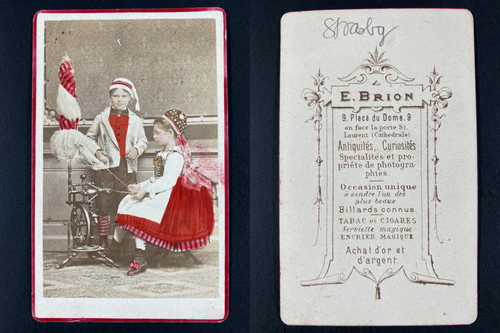 Strasbg
E. BRION
9. Place du Dome. 9
en face la porte St.
Laurent (Cathedrale)
Antiquités, Curiosités
Specialités et pro-
priété de photogra-
phies.
Occasion unique
à vendre l'un des
plus beaux
Billards connus.
TABAC et CIGARES
Serviette magique
ENCRIER MAGIQUE
Achat d'or et
d'argent.